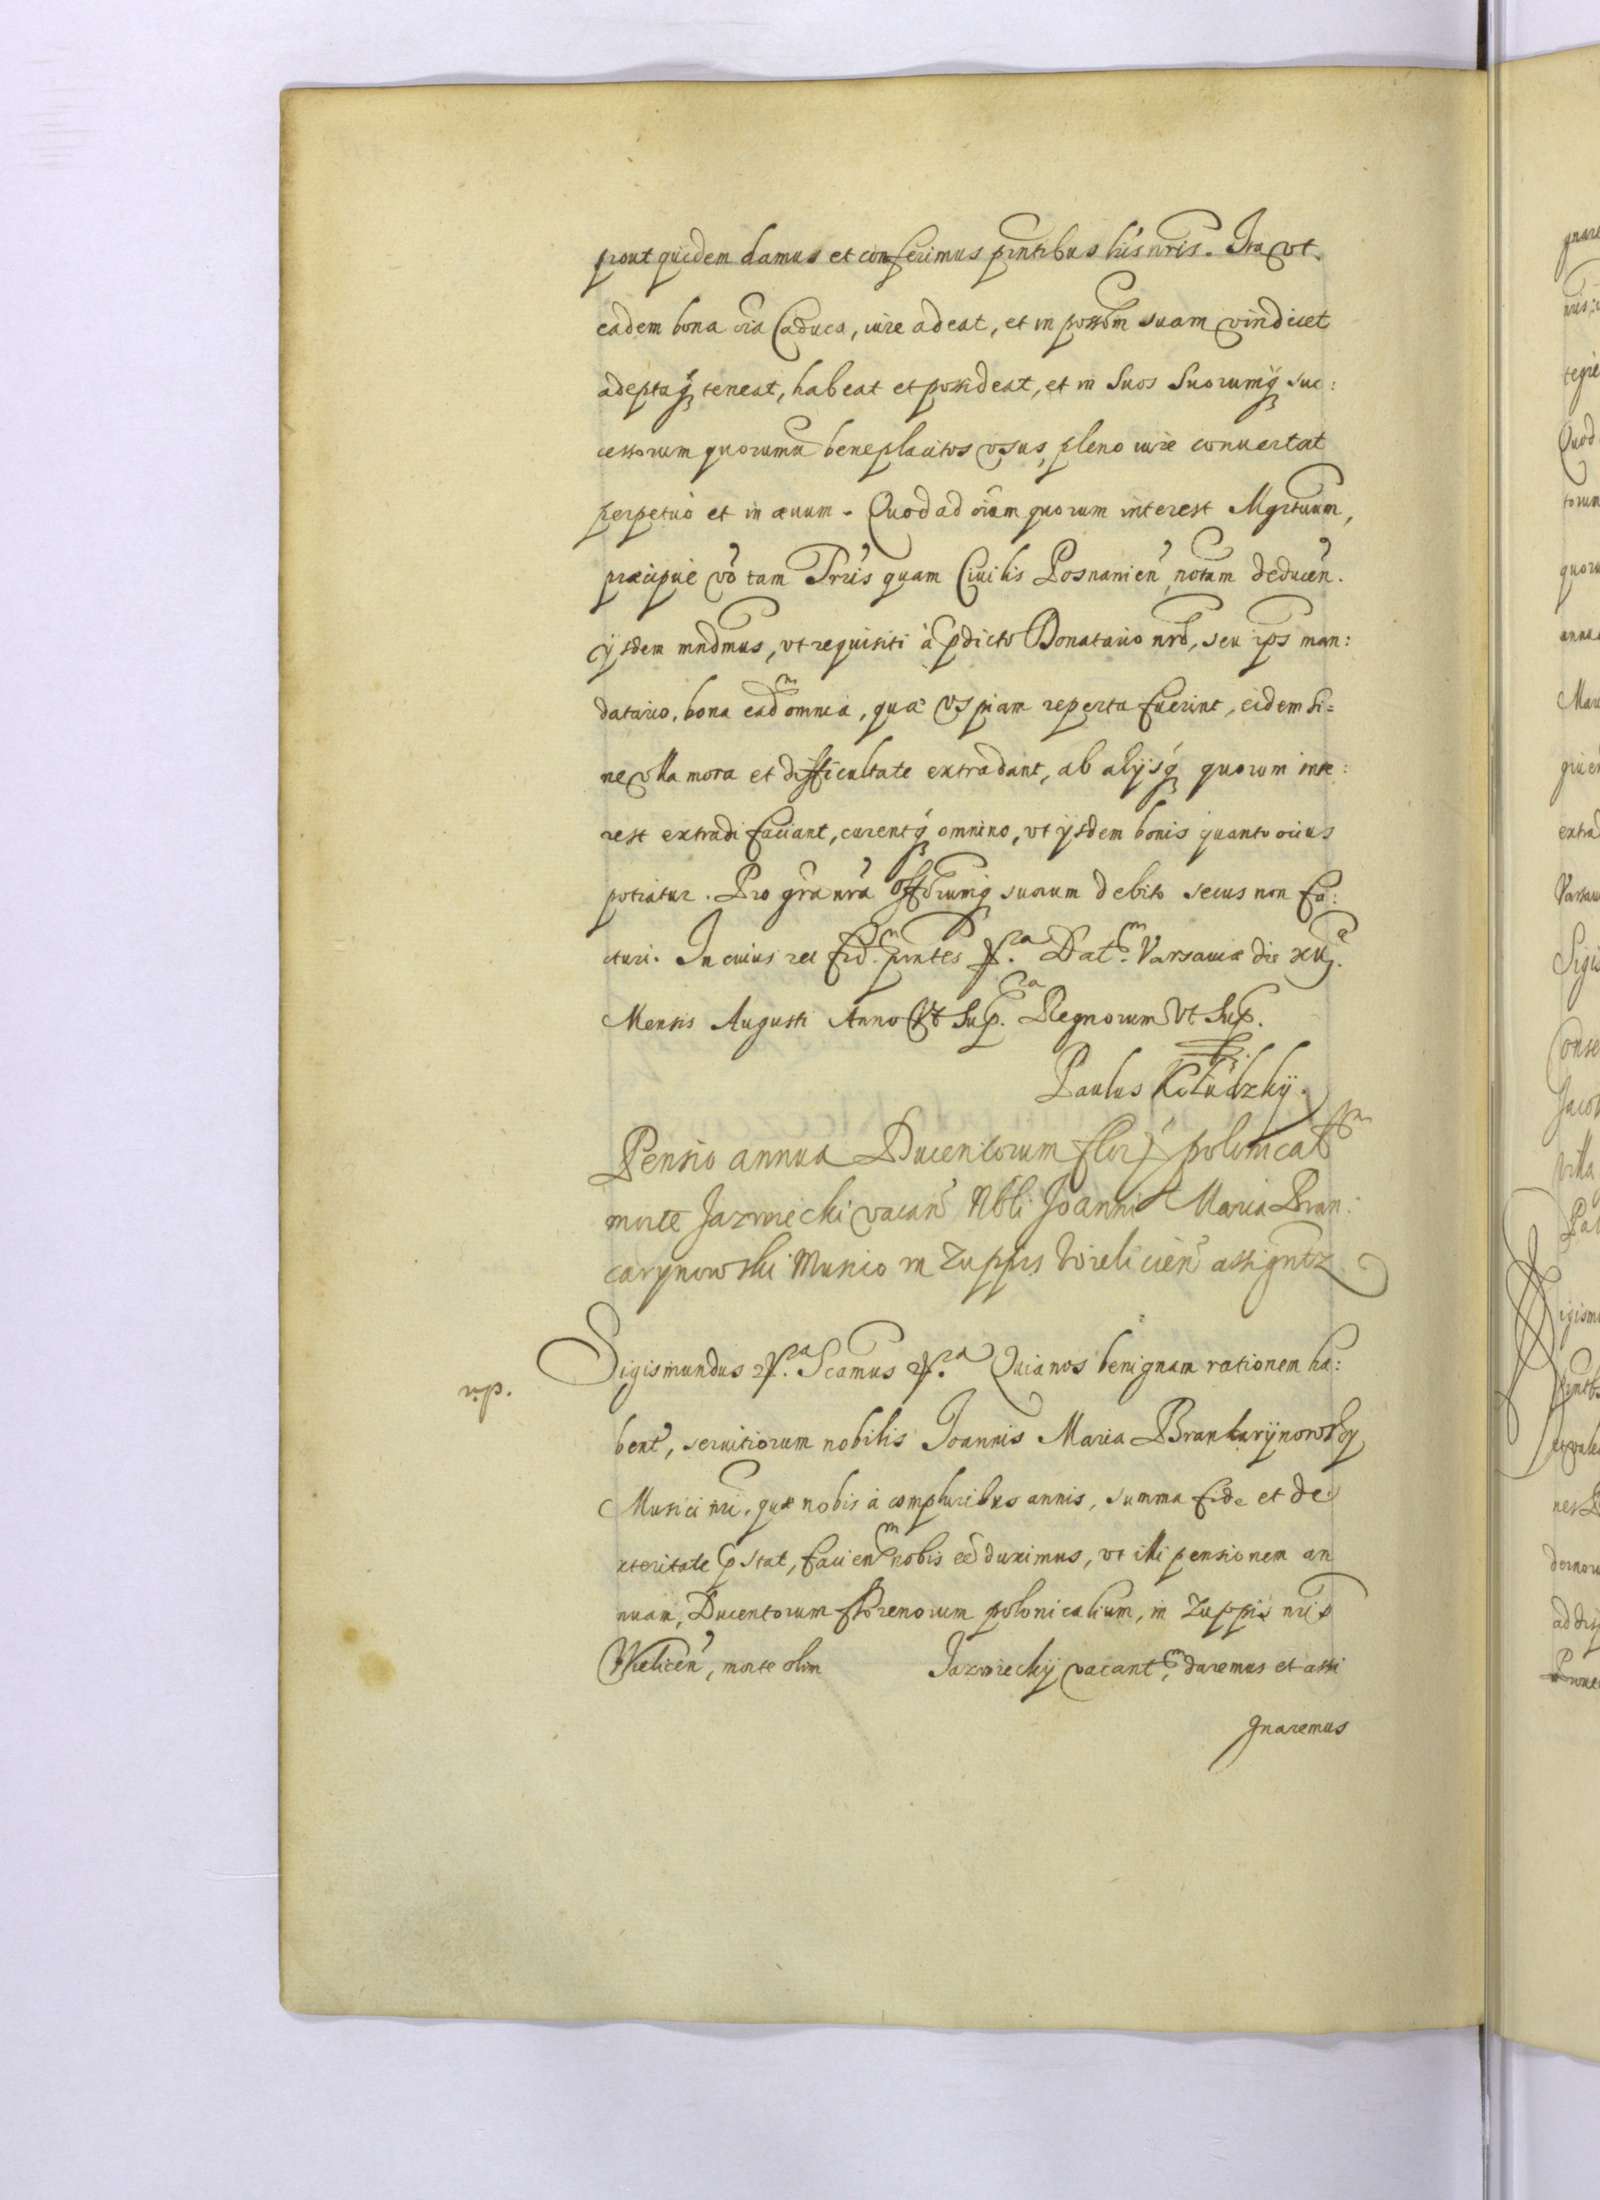 prout quidem damus et conferimus pñtibus lris nris. Ita vt
eadem bona oia Caduca, iure adeat, et in possom suam vindicet
adeptaq teneat, habeat et possideat, et in Suos Suorumq suc:
cessorum quorumu beneplacitos vsus, pleno iure conuertat
perpetuò et in æuum. Quod ad oium quorum interest
præcipuè vo tam Trris quam Ciuilis Posnanien notam deducen.
ysdem mndmus, vt requisiti à pdicto Donatario nro, seu ips man:
datario, bona eadm omnia, quæ vspiam reperta fuerint, eidem si=
ne vlla mora et difficultate extradant, ab alijsq quorum inte:
rest extradi faciant, curentq omnino, vt ysdem bonis quanto ocius
potiatur. Pro gra nra offorumq suorum debito secus non fa:
cturi. In cuius rei fid. pntes Dat. Varsauiæ die
Mensis Augusti Anno Vt Sup. Regnorum Vt Sup.
Paulus Koludzkÿ.
Pensio annua Ducentorum flor polonical
morte Jazwiecki vacan Nbli Joanni Maria Bran:
carynowski Musico in Zuppis Wielicien assigntr
Sigismundus Scamus Quia nos benignam rationem ha:
bent, seruitiorum nobilis Joannis Maria Brankarÿnowsky
Musici nri, quæ nobis à compluribus annis, summa fide et de
xteritate pstat, facienm nobis ee duximus, vt illi pensionem an
nuam, Ducentorum florenorum polonicalium, in Zuppis nris
Wielicen, morte olim Jazwieckÿ vacantem, daremus et assi
gnaremus